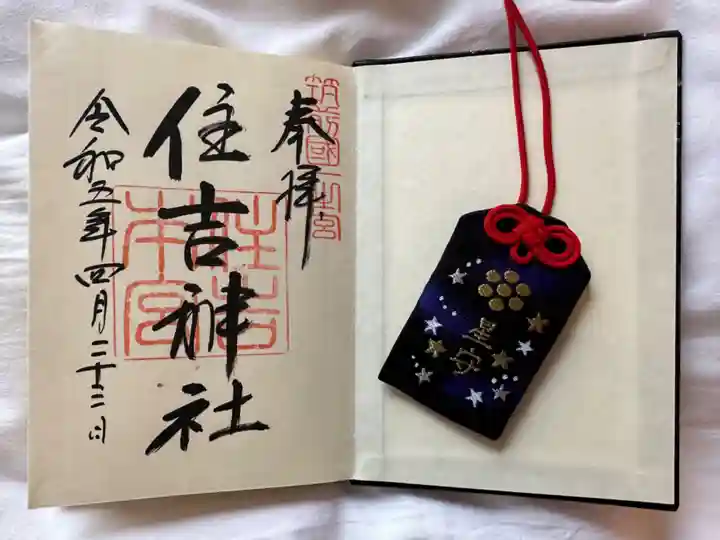 奉拝
筑前國一之宮
住吉神社
住吉本宮
令和五年四月二十二日
星守